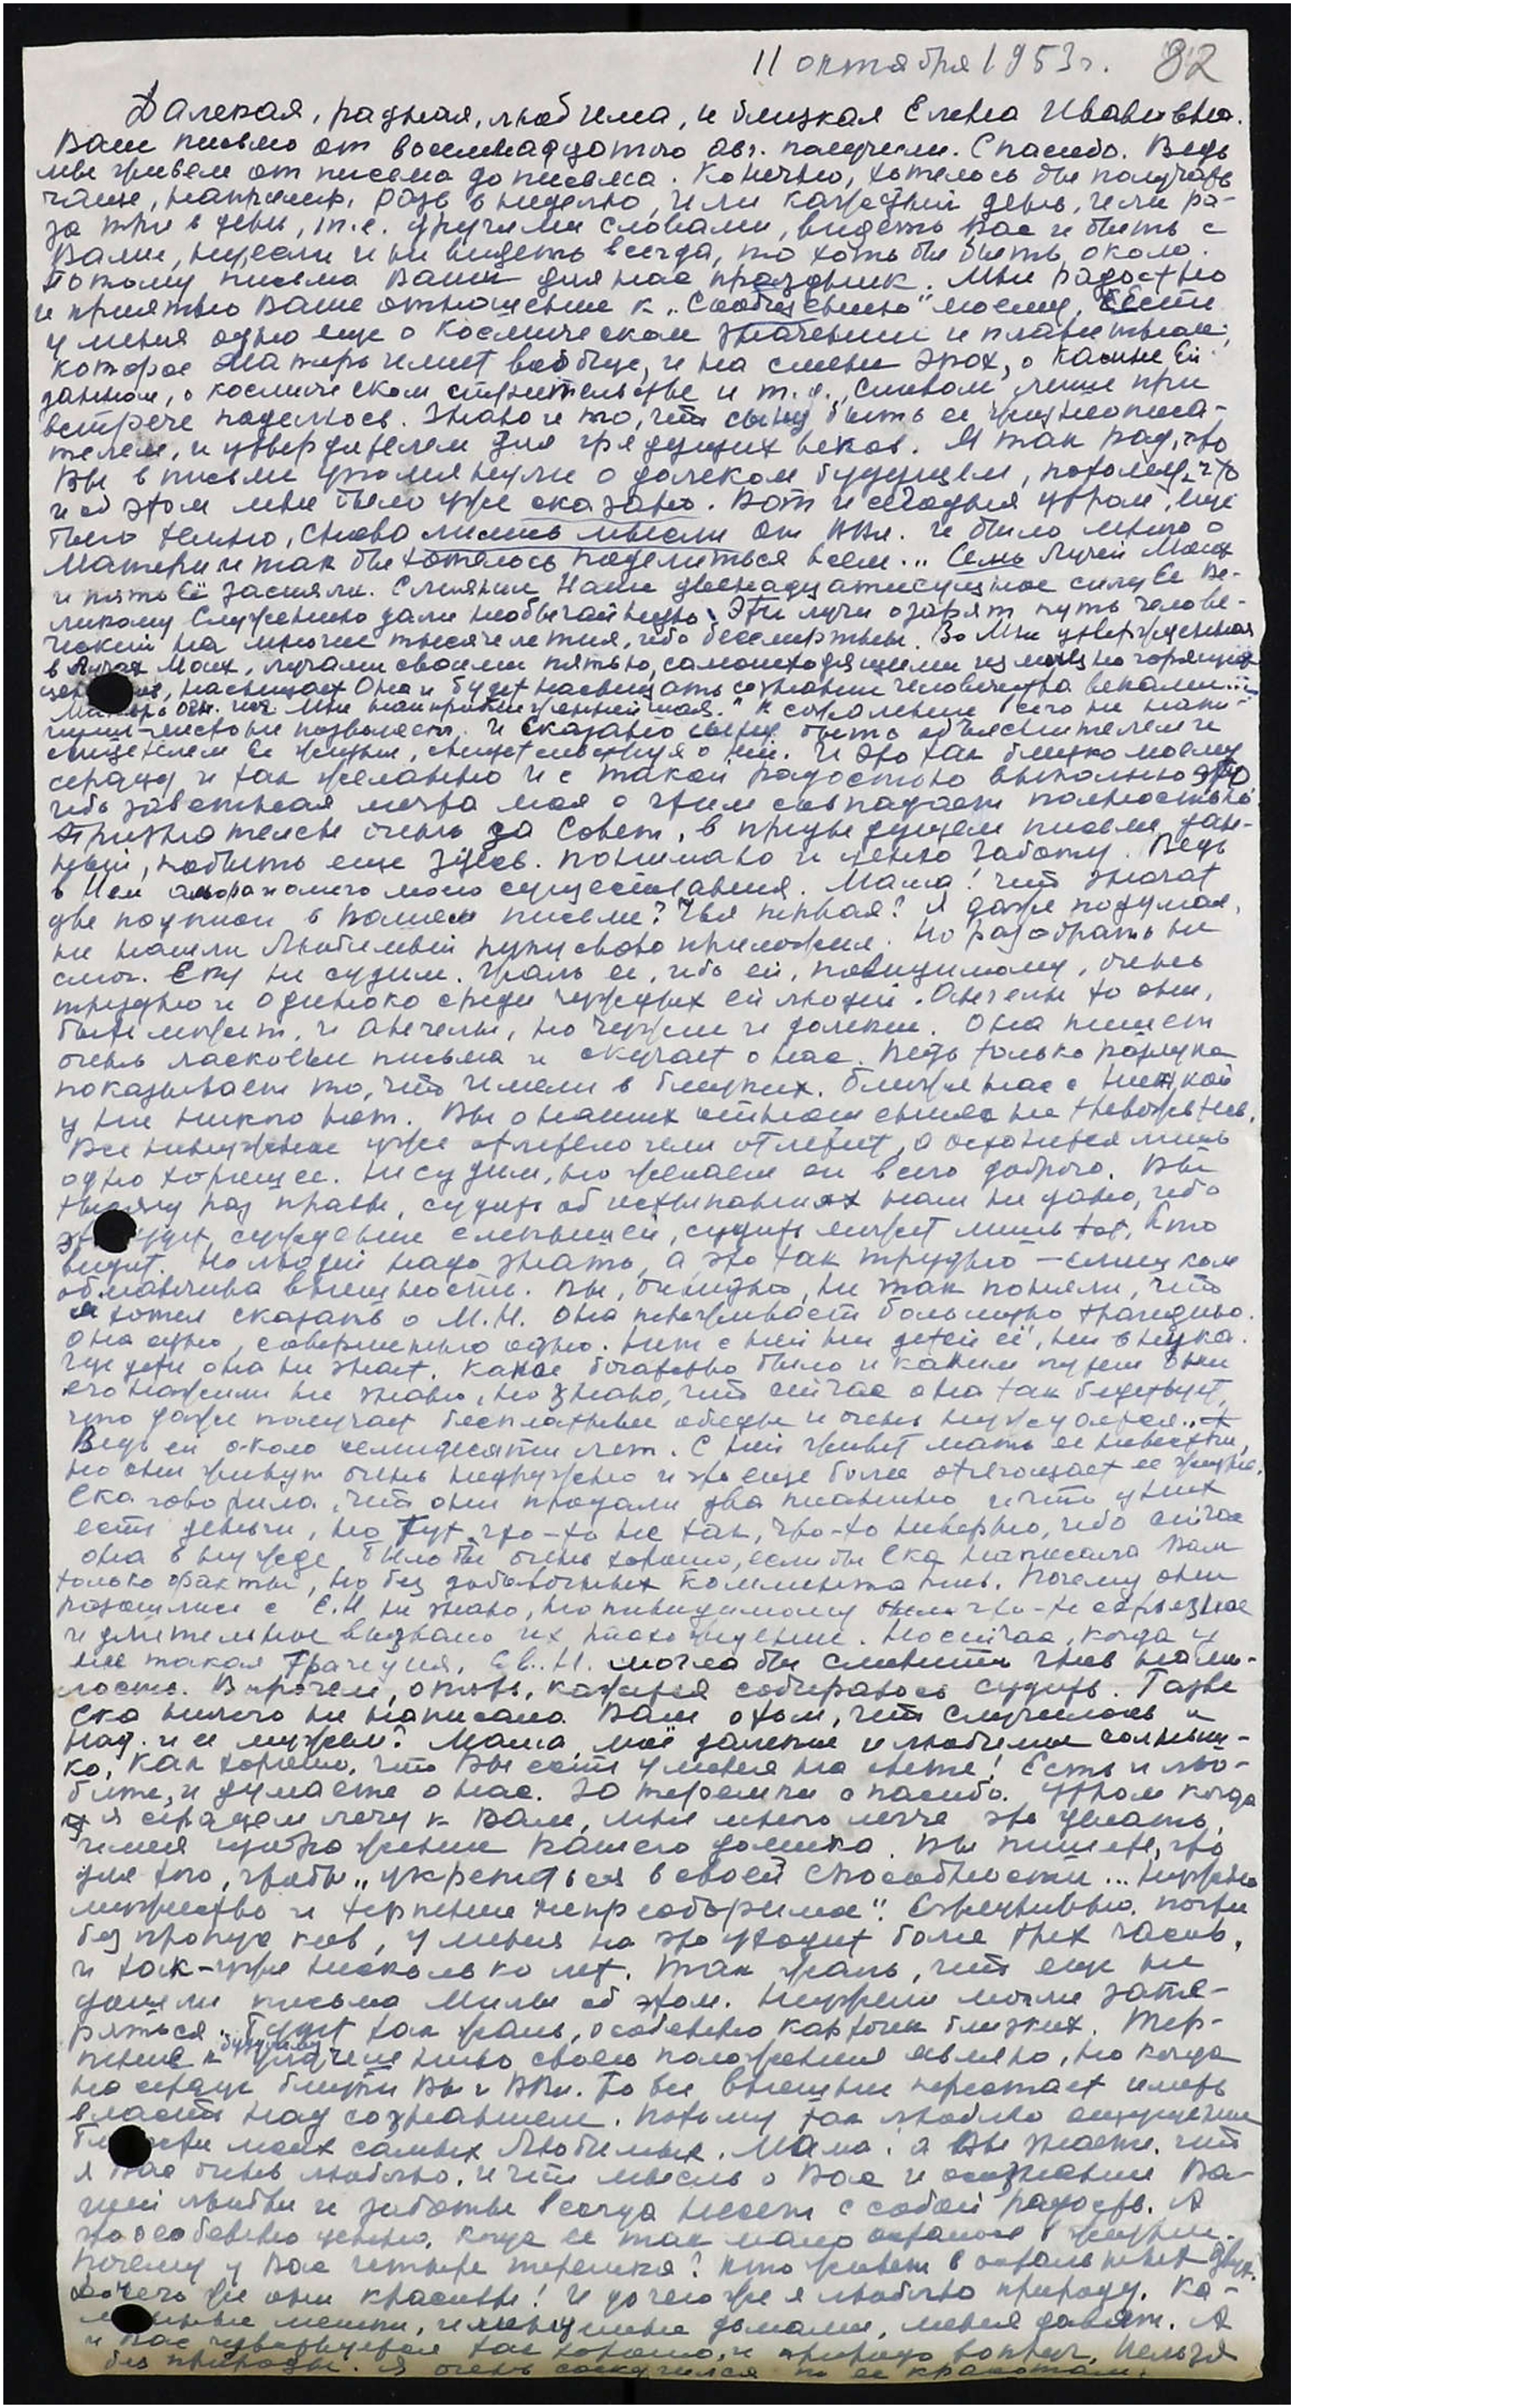 11 октября 1953г. 82
Далекая, родная, любимая, и близкая Елена Ивановна.
Ваше письмо от восемнадцатого авг. получили. Спасибо. Ведь
мы живем от письма до письма. Конечно, хотелось бы получать
чаще, например, раз в неделю, или каждый день, или ра-
за три в день, т.е. другими словами, видеть Вас и быть с
Вами, ну если и не видеть всегда, то хоть бы быть около.
Потому письма Ваши для нас праздник. Мне радостно
и приятно Ваше отношение к „Сообщению" моему. Есть
у меня одно еще о космическом значении и планетном,
которое Матерь имеет вообще, и на смене эпох, о Камне Ей
данном, о космическом строительстве и т.д., словом лишь при
встрече поделюсь. Знаю и то, что сыну быть ее жизнеописа-
телем, и утвердителем для грядущих веков. Я так рад, что
Вы в письме упомянули о далеком будущем, потому что
и об этом мне было уже сказано. Вот и сегодня утром, еще
было темно, снова лились мысли от Вл. и было много о
Матери и так бы хотелось поделиться всем... Семь Лучей Моих
и пять Её засияли. Слиянии Наши двенадцатисущное силу Ее Ве-
ликому Служению дали необычайную. Эти лучи озарят путь челове-
ческий на многие тысячелетия, ибо бессмертны. Во Мне утвержденная
в Лучах Моих, лучами своими пятью, самоисходящими из мощно горящих
насыщает Она и будет насыщать сознание человечества веками...
К сожалению всего не напи-
И сказано сыну быть объяснителем и
Ее жизни, свидетельствуя о ней. И это так близко моему
сердцу и так желанно и с такой радостью выполню это,
ибо заветная мечта моя с этим совпадает полностью.
Признателен очень за Совет, в предыдущем письме дан-
ный, побыть еще здесь. Понимаю и ценю заботу. Ведь
в Ней моего существования. Мама! что значат
две подписи в Вашем письме? Чья первая? Я даже подумал,
не нашли Любимый руку свою приложил. Но разобрать не
смог. Ску не судим. Жаль ее, ибо ей, повидимому, очень
трудно и одиноко среди чуждых ей людей. Ангелы то они,
быть может, и ангелы, но чужие и далекие. Она пишет
очень ласковые письма и скучает о нас. Ведь только разлука
показывает то, что имели в близких. Ближе нас с Нинкой
у нее никого нет. Вы о наших отношениях не тревожьтесь.
Все ненужное уже отлетело или отлетит, а останется лишь
одно хорошее. Не судим, но желаем ей всего доброго. Вы
тысячу раз правы, судить об испытаниях нам не дано, ибо
это будет суждение слепцей, судить может лишь тот, кто
видит. Но людей надо знать, а это так трудно — слишком
обманчива внешность. Вы, очевидно, не так поняли, что
я хотел сказать о М.Н. Она переживает большую трагедию.
Она одна, совершенно одна. Нет с ней ни детей её, ни внука.
Где дети она не знает. Какое богатство было и каким путем они
его нажили не знаю, но знаю, что сейчас она так бедствует,
что даже получает бесплатные обеды и очень нуждается.
Ведь ей около семидесяти лет. С ней живет мать ее невестки,
но они живут очень недружно и это еще более отягощает ее жизнь.
Ска говорила, что они продали два пианино и что у них
есть деньги, но тут что-то не так, что-то неверно, ибо сейчас
она в нужде. Было бы очень хорошо, если бы Ска написала Вам
только факты, но без добавочных комментариев. Почему они
разошлись с Е.Н не знаю, но повидимому было что-то серьезное
и длительное вызвано их расхождение. Но сейчас, когда у
нее такая трагедия, Ев. Н. могла бы сменить гнев на ми-
лость. Впрочем, опять, кажется собираюсь судить. Разве
Ска ничего не написала Вам о том, что случилось с
Над. и ее мужем? Мама, моё далекое и любимое солнышко-
ко, как хорошо, что Вы есть у меня на свете! Есть и лю-
бите, и думаете о нас. За теремки спасибо. Утром когда
я сердцем лечу к Вам, мне много легче это делать,
имея изображение Вашего домика. Вы пишете, что
для того, чтобы „укрепиться в своей способности... нужно
мужество и терпение непреоборимое". Ежедневно, почти
без пропусков, у меня на это уходит более трех часов,
и так-уже несколько лет. Так жаль, что еще не
дошли письма Милы об этом. Неужели могли затя-
ряться. Будет так жаль, особенно карточек близких. Тер-
пение к будущему улучшению своего положения являю, но когда
на сердце близки Вы и Вл. то все внешнее перестает иметь
власть над сознанием. Потому так люблю ощущение
близости моих самых Любимых. Мама! а Вы знаете, что
я Вас очень люблю, и что мысль о Вас и осознание Ва-
шей любви и заботы всегда несет с собой радость. А
это особенно ценно, когда ее так мало осталось в жизни.
Почему у Вас четыре теремка? Кто живет в остальных двух.
До чего же они красивы! И до чего же я люблю природу. Ка-
менные мешки, именуемые домами, меня давят. А
у Вас чувствуется так хорошо, и природа вокруг. Нельзя
без природы. Я очень соскучился по ее красотам.